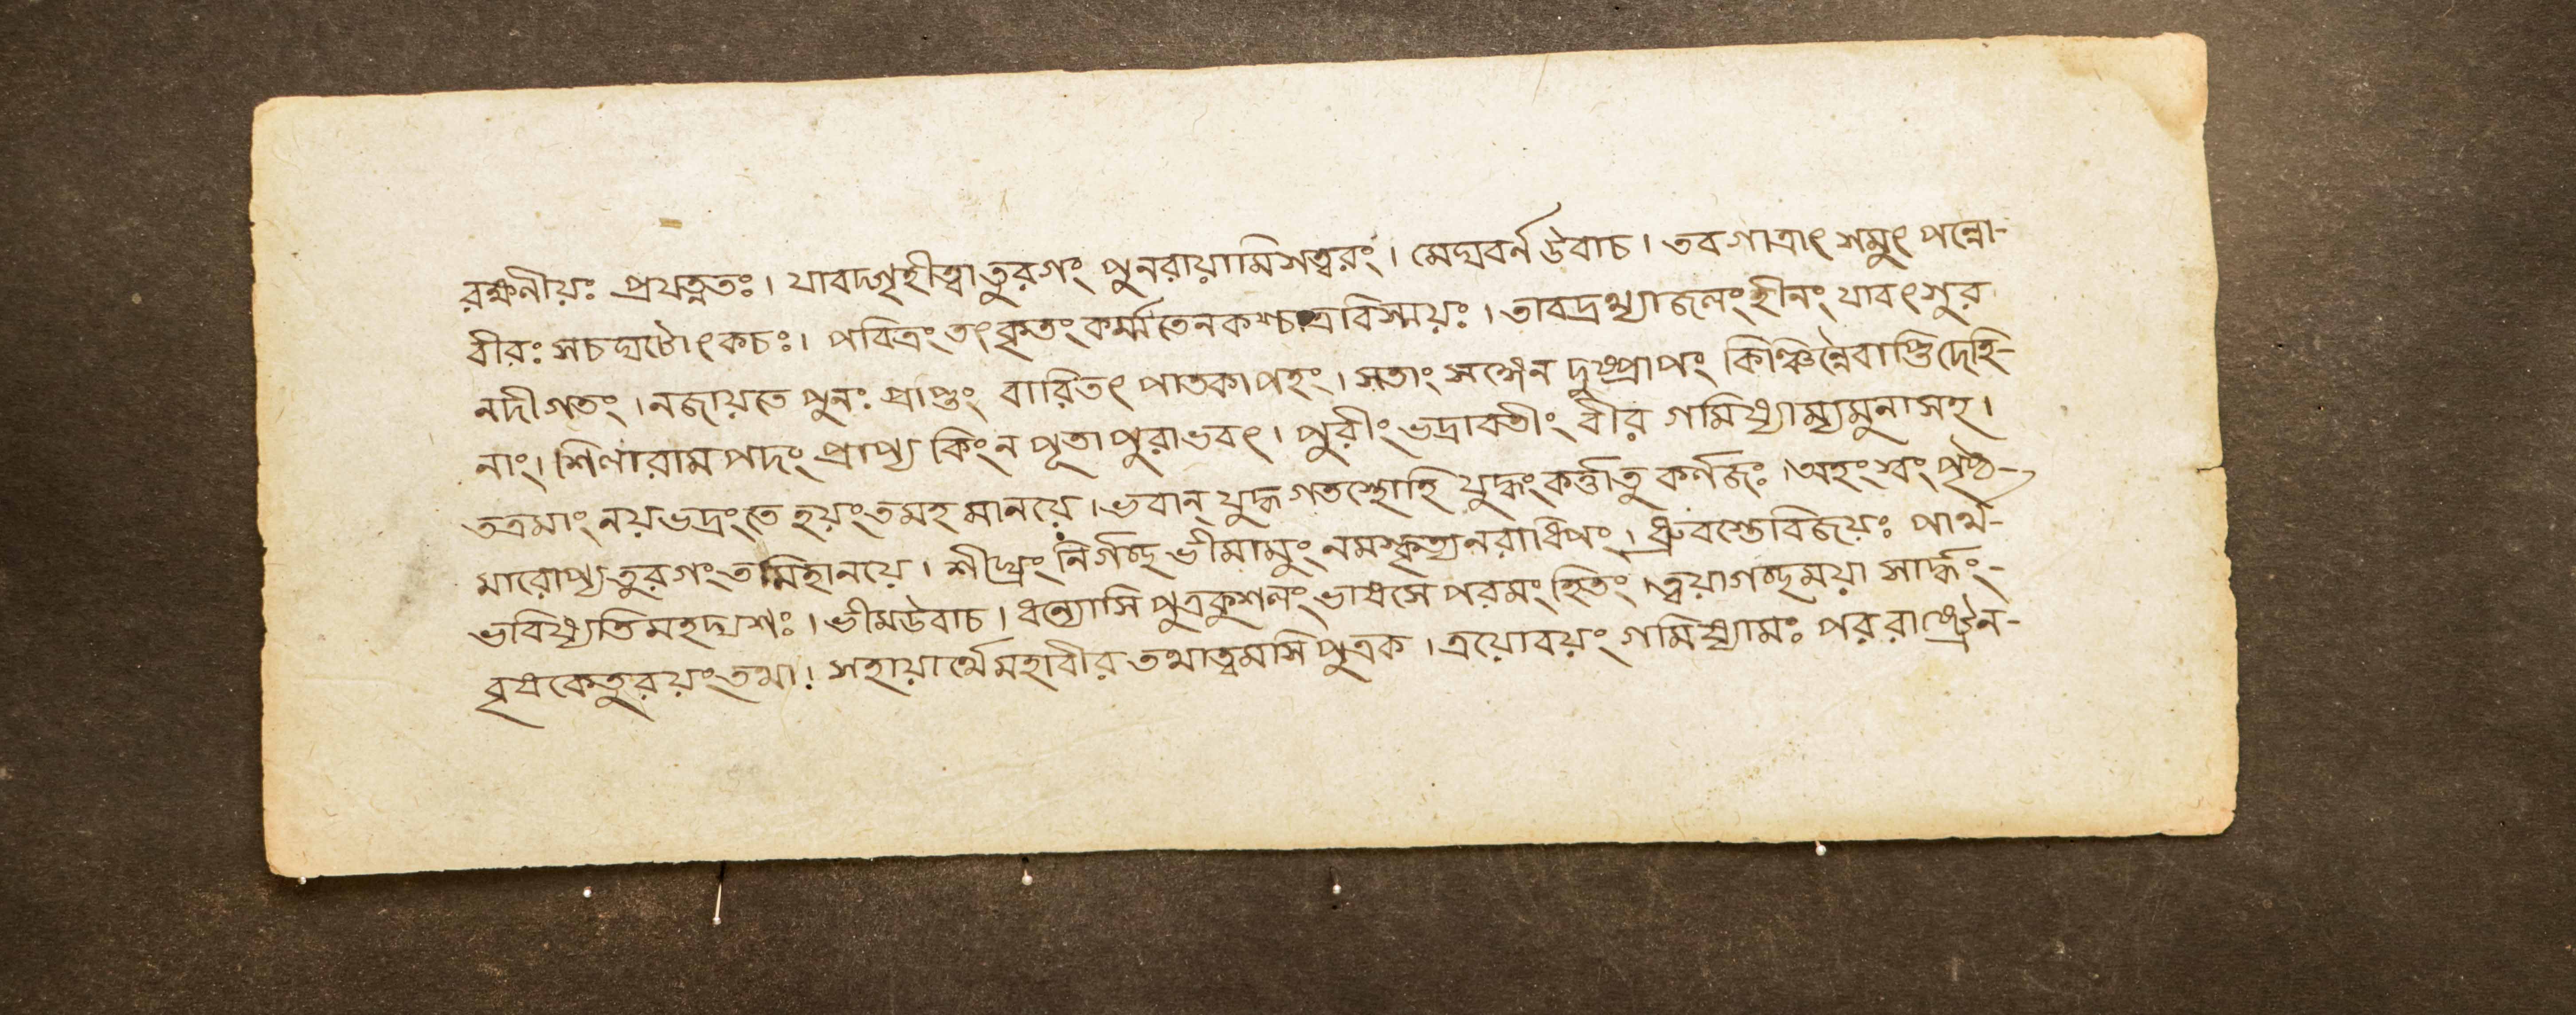 রক্ষনীয়ঃ প্রযত্নতঃ। যাবদ্গৃহীত্বা তুরগং পুনরায়ামি শত্বরং। মেঘবর্ন উবাচ। তব গাত্রাৎ শমুৎ পন্নো-
বীরঃ সচ ঘটোৎকচঃ। পবিত্রং তৎ কৃতং কর্ম্ম তেন কশ্চাত্র বিস্ময়ঃ। তাবদ্রথ্যাজলং হীনং যাবৎ শুর
নদী গতং। ন জায়তে পুনঃ প্রাপ্তুং বারি তৎ পাতকাপহং। সতাং সঙ্গেন দুষ্প্রাপং কিঞ্চিন্নৈবাস্তি দেহি-
নাং। শিলা রাম পদং প্রাপ্য কিং ন পূতা পুরাভবৎ। পুরীং ভদ্রাবতীং বীর গমিষ্যাম্যমুনা সহ।
তত্র মাং নয় ভদ্রং তে হয়ং তমহ মানয়ে। ভবান্ যুদ্ধ গতস্থোহি যুদ্ধং কর্ত্তা তু কর্ণজঃ। অহং শ্বং পৃষ্ঠ-
মারোপ্য তুরগং তমিহানয়ে। শীঘ্রং নির্গচ্ছ ভীমামুং নমস্কৃত্য নরাধিপং। ধ্রুবস্তে বিজয়ঃ পার্থ-
ভবিষ্যতি মহদ্যশঃ। ভীম উবাচ। ধন্যোসি পুত্র কুশলং ভাষসে পরমং হিতং। ত্বয়া গচ্ছ ময়া সার্দ্ধং-
বৃষকেতুরয়ং তথা। সহায়ার্থে মহাবীর তথা ত্বমসি পুত্রক। ত্রয়ো বয়ং গমিষ্যামঃ পর রাষ্ট্রেন-